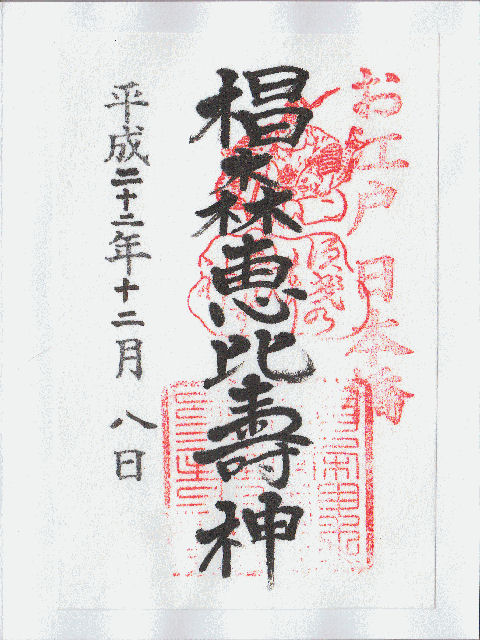 お江戸 日本橋
椙森恵比壽神
平成二十二年十二月八日